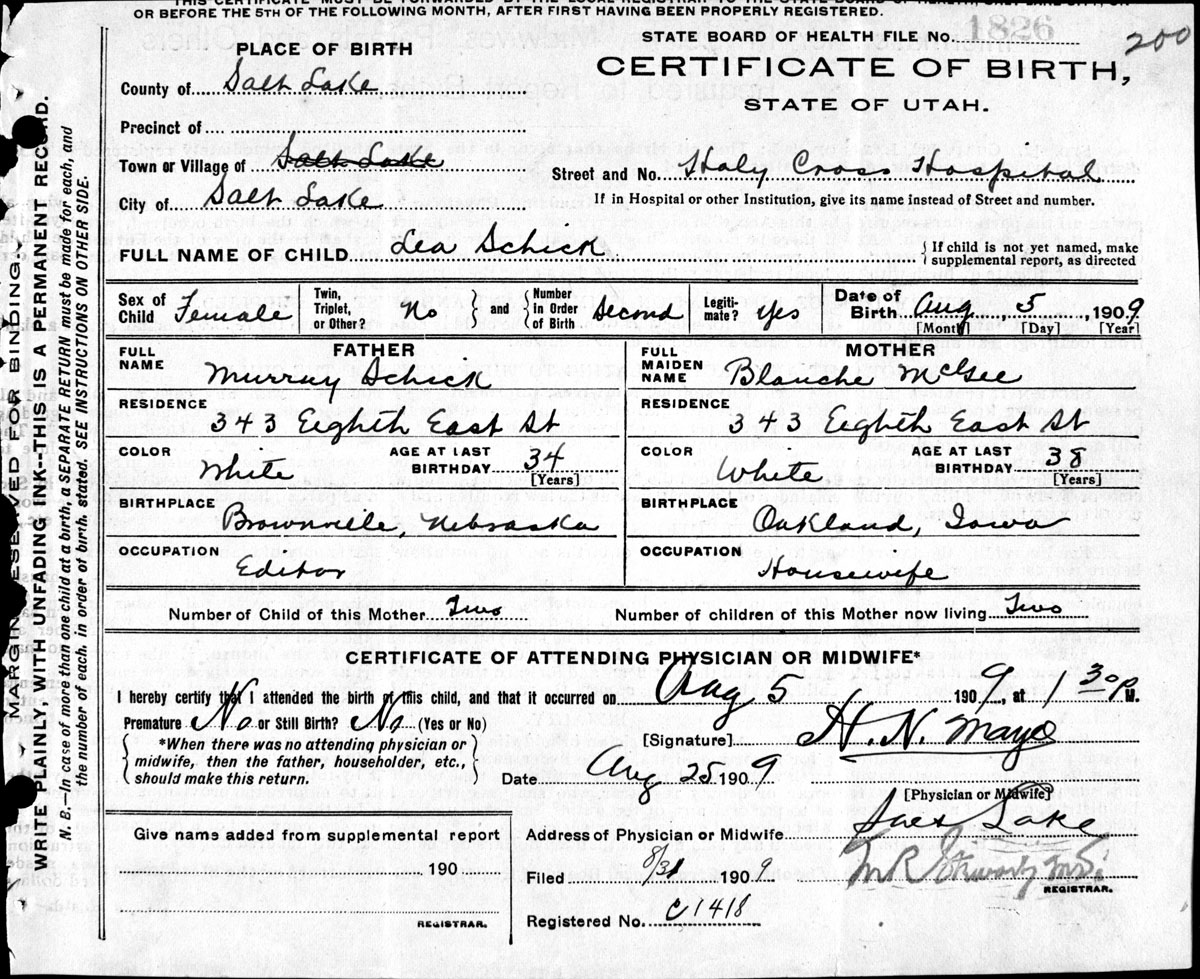 OR BEFORE THE 5TH OF THE FOLLOWING MONTH, AFTER FIRST HAVING BEEN PROPERLY REGISTERED.
STATE BOARD OF HEALTH FILE No. 1826
200
PLACE OF BIRTH
CERTIFICATE OF BIRTH,
STATE OF UTAH.
County of Salt Lake
Precinct of
Town or Village of Salt Lake
Street and No. Holy Cross Hospital
City of Salt Lake
If in Hospital or other Institution, give its name instead of Street and number.
FULL NAME OF CHILD Lea Schick
If child is not yet named, make supplemental report, as directed
Sex of Child Female
Twin, Triplet, or Other? No
and
Number In Order of Birth Second
Legitimate? Yes
Date of Birth Aug 5, 1909
[Month] [Day] [Year]
FATHER
FULL NAME Murray Schick
RESIDENCE 343 Eighth East St
COLOR White
AGE AT LAST BIRTHDAY 34 [Years]
BIRTHPLACE Brownville, Nebraska
OCCUPATION Editor
MOTHER
FULL MAIDEN NAME Blanche McGee
RESIDENCE 343 Eighth East St
COLOR White
AGE AT LAST BIRTHDAY 38 [Years]
BIRTHPLACE Oakland, Iowa
OCCUPATION Housewife
Number of Child of this Mother Two
Number of children of this Mother now living Two
CERTIFICATE OF ATTENDING PHYSICIAN OR MIDWIFE*
I hereby certify that I attended the birth of this child, and that it occurred on Aug 5 1909, at 1 30 P M.
Premature No or Still Birth? No (Yes or No)
*When there was no attending physician or midwife, then the father, householder, etc., should make this return.
[Signature] H. N. Mayo
Date Aug 25 1909
[Physician or Midwife]
Give name added from supplemental report
190
REGISTRAR.
Address of Physician or Midwife Salt Lake
Filed 8/31 1909
REGISTRAR.
Registered No. C1418
MARGIN RESERVED FOR BINDING
WRITE PLAINLY, WITH UNFADING INK—THIS IS A PERMANENT RECORD.
N. B.—In case of more than one child at a birth, a SEPARATE RETURN must be made for each, and
the number of each, in order of birth, stated. SEE INSTRUCTIONS ON OTHER SIDE.